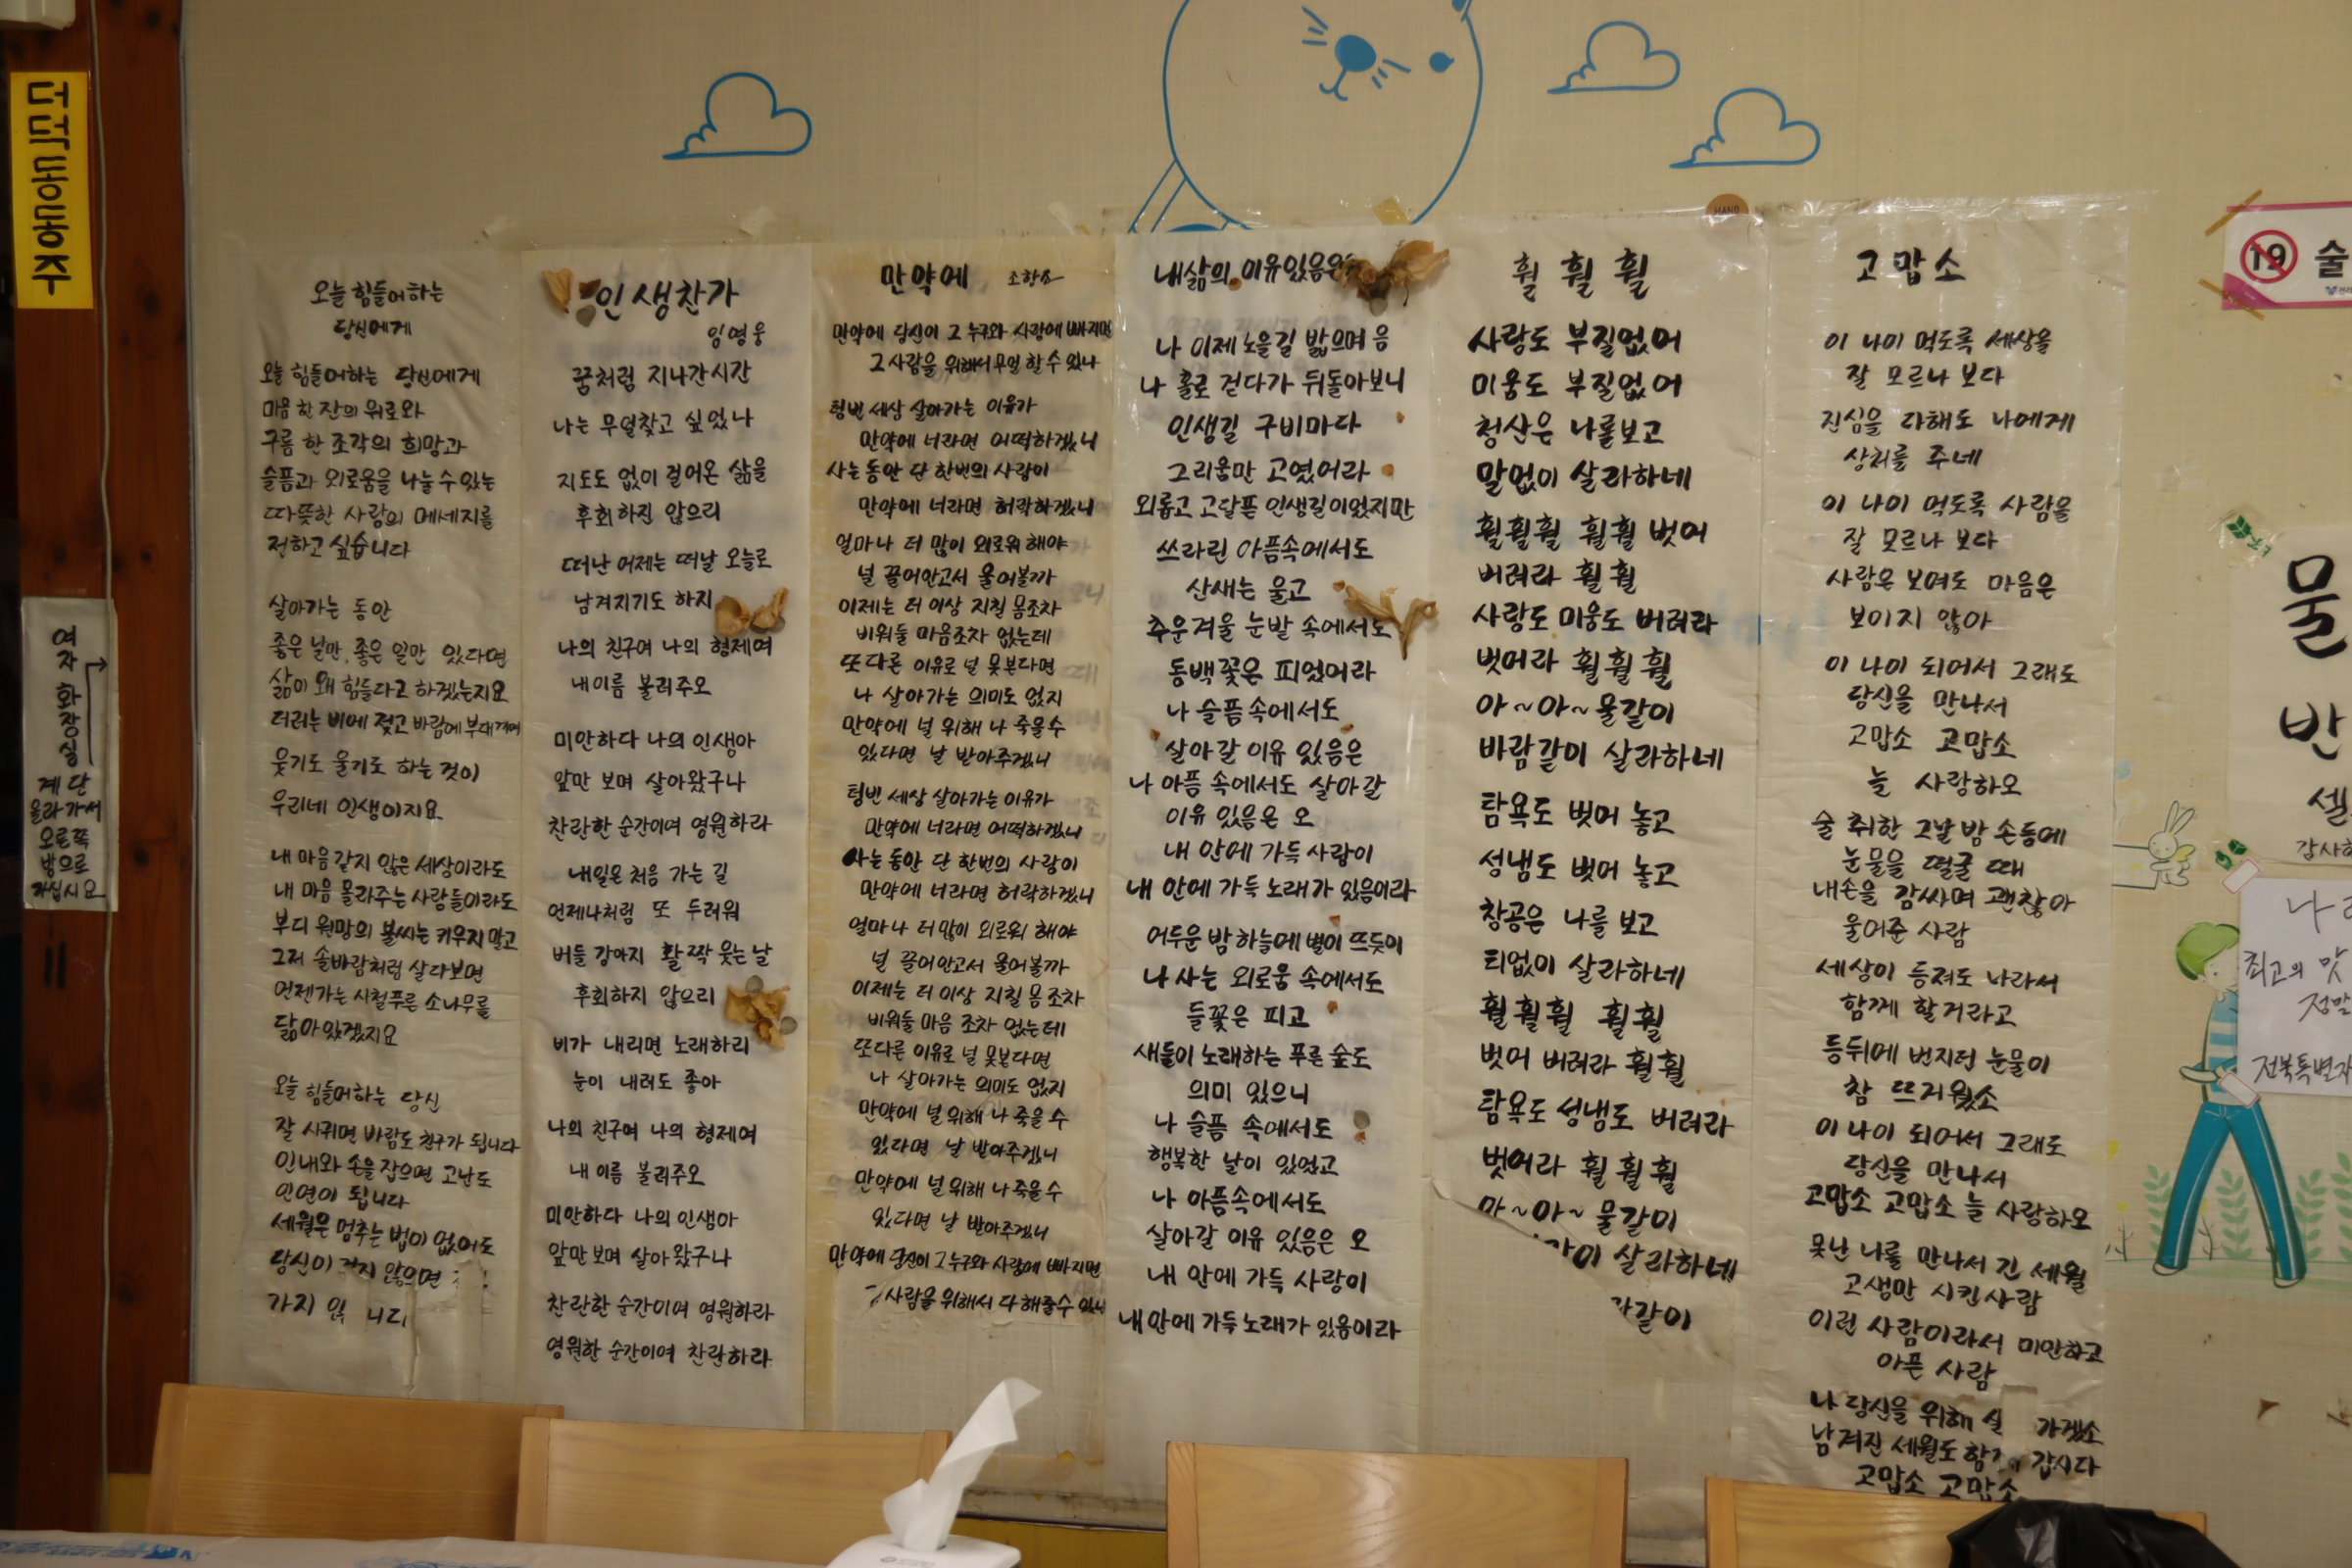 더덕동동주
여자화장실
계단
올라가서
오른쪽
방으로
가십시요
오늘 힘들어하는
당신에게
오늘 힘들어하는 당신에게
마음 한 잔의 위로와
구름 한 조각의 희망과
슬픔과 외로움을 나눌 수 있는
따뜻한 사랑의 메세지를
전하고 싶습니다
살아가는 동안
좋은 날만, 좋은 일만 있다면
삶이 왜 힘들다고 하겠는지요
더러는 비에 젖고 바람에 부대끼며
웃기도 울기도 하는 것이
우리네 인생이지요
내 마음 같지 않은 세상이라도
내 마음 몰라주는 사람들이라도
부디 원망의 불씨는 키우지 말고
그저 솔바람처럼 살다보면
언젠가는 사철푸른 소나무를
닮아 있겠지요
오늘 힘들어하는 당신
잘 사귀면 바람도 친구가 됩니다
인내와 손을 잡으면 고난도
인연이 됩니다
세월은 멈추는 법이 없어도
당신이 걷지 않으면
가지 않 니다
인생찬가
임영웅
꿈처럼 지나간시간
나는 무얼찾고 싶었나
지도도 없이 걸어온 삶을
후회하진 않으리
떠난 어제는 떠날 오늘로
남겨지기도 하지
나의 친구여 나의 형제여
내이름 불러주오
미안하다 나의 인생아
앞만 보며 살아왔구나
찬란한 순간이여 영원하라
내일은 처음 가는 길
언제나처럼 또 두려워
버들 강아지 활짝 웃는 날
후회하지 않으리
비가 내리면 노래하리
눈이 내려도 좋아
나의 친구여 나의 형제여
내 이름 불러주오
미안하다 나의 인생아
앞만 보며 살아 왔구나
찬란한 순간이여 영원하라
영원한 순간이여 찬란하라
만약에 조항조
만약에 당신이 그 누구와 사랑에 빠지면
그 사람을 위해서 무얼 할 수 있나
텅빈 세상 살아가는 이유가
만약에 너라면 어떡하겠니
사는 동안 단 한번의 사랑이
만약에 너라면 허락하겠니
얼마나 더 많이 외로워 해야
널 끌어안고서 울어볼까
이제는 더 이상 지칠 몸조차
비워둘 마음조차 없는데
또 다른 이유로 널 못본다면
나 살아가는 의미도 없지
만약에 널 위해 나 죽을수
있다면 날 받아주겠니
텅빈 세상 살아가는 이유가
만약에 너라면 어떡하겠니
사는 동안 단 한번의 사랑이
만약에 너라면 허락하겠니
얼마나 더 많이 외로워 해야
널 끌어안고서 울어볼까
이제는 더 이상 지칠 몸 조차
비워둘 마음 조차 없는데
또다른 이유로 널 못본다면
나 살아가는 의미도 없지
만약에 널 위해 나 죽을 수
있다면 날 받아주겠니
만약에 널 위해 나 죽을 수
있다면 날 받아주겠니
만약에 당신이 그 누구와 사랑에 빠지면
그 사람을 위해서 다 해줄수 있니
내삶의 이유있음은
나 이제 노을길 밟으며 음
나 홀로 걷다가 뒤돌아보니
인생길 구비마다
그리움만 고였어라
외롭고 고달픈 인생길이었지만
쓰라린 아픔속에서도
산새는 울고
추운겨울 눈밭 속에서도
동백꽃은 피었어라
나 슬픔속에서도
살아갈 이유 있음은
나 아픔 속에서도 살아갈
이유 있음은 오
내 안에 가득 사랑이
내 안에 가득 노래가 있음이라
어두운 밤 하늘에 별이 뜨듯이
나 사는 외로움 속에서도
들꽃은 피고
새들이 노래하는 푸른 숲도
의미 있으니
나 슬픔 속에서도
행복한 날이 있었고
나 아픔속에서도
살아갈 이유 있음은 오
내 안에 가득 사랑이
내 안에 가득 노래가 있음이라
훨 훨 훨
사랑도 부질없어
미움도 부질없어
청산은 나를보고
말없이 살라하네
훨훨훨 훨훨 벗어
버려라 훨훨
사랑도 미움도 버려라
벗어라 훨훨훨
아~아~물같이
바람같이 살라하네
탐욕도 벗어 놓고
성냄도 벗어 놓고
창공은 나를 보고
티없이 살라하네
훨훨훨 훨훨
벗어 버려라 훨훨
탐욕도 성냄도 버려라
벗어라 훨훨훨
아~아~ 물같이
같이 살라하네
같이
고맙소
이 나이 먹도록 세상을
잘 모르나 보다
진심을 다해도 나에게
상처를 주네
이 나이 먹도록 사람을
잘 모르나 보다
사람은 보여도 마음은
보이지 않아
이 나이 되어서 그래도
당신을 만나서
고맙소 고맙소
늘 사랑하오
술 취한 그날 밤 손등에
눈물을 떨굴 때
내손을 감싸며 괜찮아
울어준 사람
세상이 등져도 나라서
함께 할거라고
등뒤에 번지던 눈물이
참 뜨거웠소
이 나이 되어서 그래도
당신을 만나서
고맙소 고맙소 늘 사랑하오
못난 나를 만나서 긴 세월
고생만 시킨사람
이런 사람이라서 미안하고
아픈 사람
나 당신을 위해 살 가겠소
남겨진 세월도 함께 갑시다
고맙소 고맙소
HAND
19 술
물
반
셀
최고의 맛
정말
전북특별자